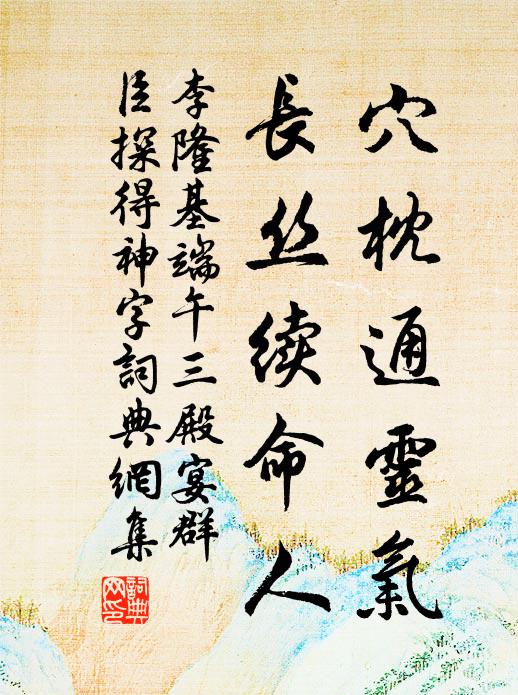 穴枕通靈氣
長丝续命人
李隆基端午三殿宴群
臣探得神字詞典網集
詞典
网印